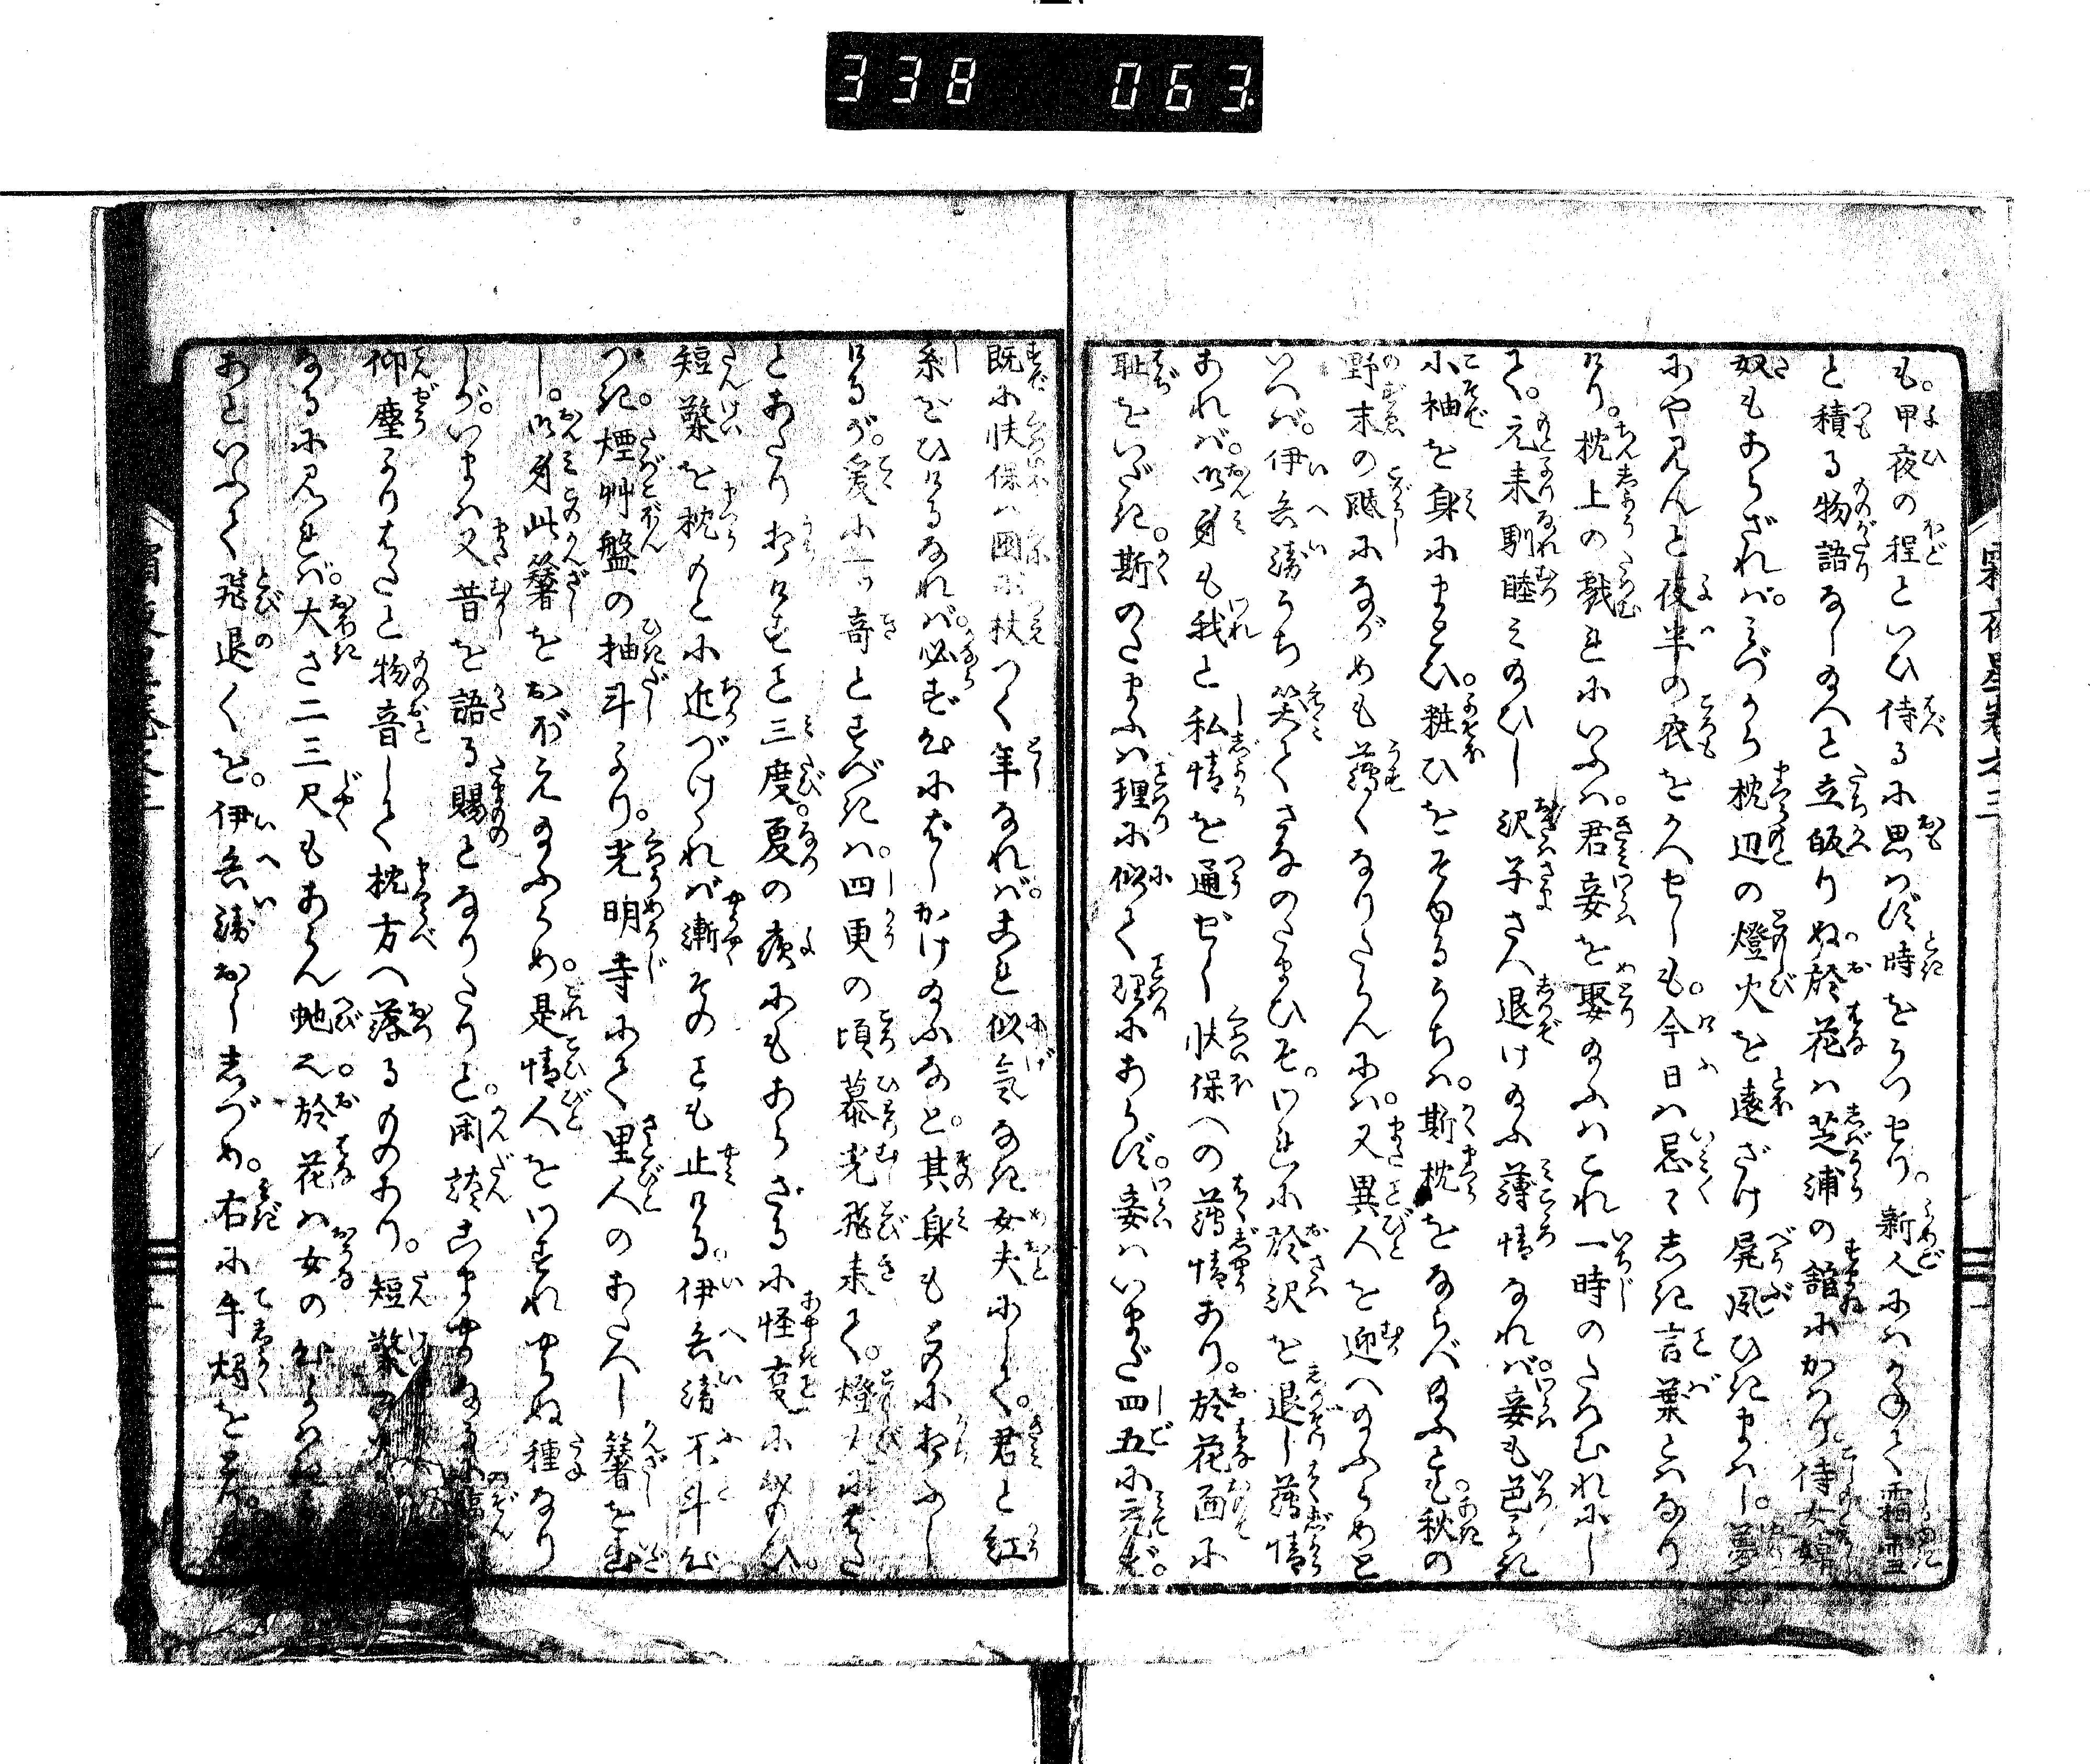 338 063
も。甲夜の程といひ侍るに思はず時をうつせり。新人にはかねて霜雪
と積る物語なし給へと立皈りぬ。於花は芝浦の舘にかはり。侍女婢
奴もあらざれば。みづから枕辺の燈火を遠ざけ屏風ひきまはし。夢
にや見んと夜半の衣をかへせしも。今日は忌々しき言葉とはなり
けり。枕上の戯れにいふは。君妾を娶り給ふはこれ一時のたはむれにし
て。元来馴睦み給ひし沢子さへ退け給ふ薄情なれば。妾も色うき
小袖を身にまとひ。粧ひをそゆるうちは。斯枕をならべ給ふとも。秋の
野末の颪にながめも薄くなりたらんには。又異人を迎へ給ふらめと
いへば。伊兵衛うち笑てさなのたまひそ。われ於沢を退し薄情
あれば。御身も我と私情を通ぜし快保への薄情あり。於花面に
恥をいだき。斯のたまふは理に似て理にあらず。妾はいまだ四五にみたず。
既に快保は圍に杖つく年なれば。まこと似気なき女夫にして。君と紅
糸をひけるなれば必ず出にはしかけ給ふなと。其身もともに打ふし
けるが。爰に一ツ奇とすべきは。四更の頃蟇光飛来て。燈火にはた
とあたり打けすこと三度。夏の夜にもあらざるに怪事に思ひ。
短檠を枕のもとに近づけければ漸そのことも止ける。伊兵衛不斗出
つき。煙艸盤の抽斗より。光明寺にて里人のあたへし簪を出
し。御身此簪をおぼえ給ふらめ。是情人をわすれやらぬ種なり
しが。いまは又昔を語る賜となりたりと。閑談
仰塵よりはたと物音して枕方へ落るものあり。短檠
なるに見れば。大さ二三尺もあらん虵也。於花は女の
あといふて飛退くを。伊兵衛おししづめ。右に手燭をとり。